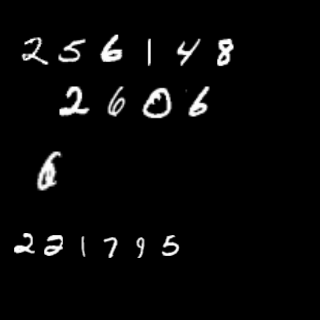 256148
2606
6
221795